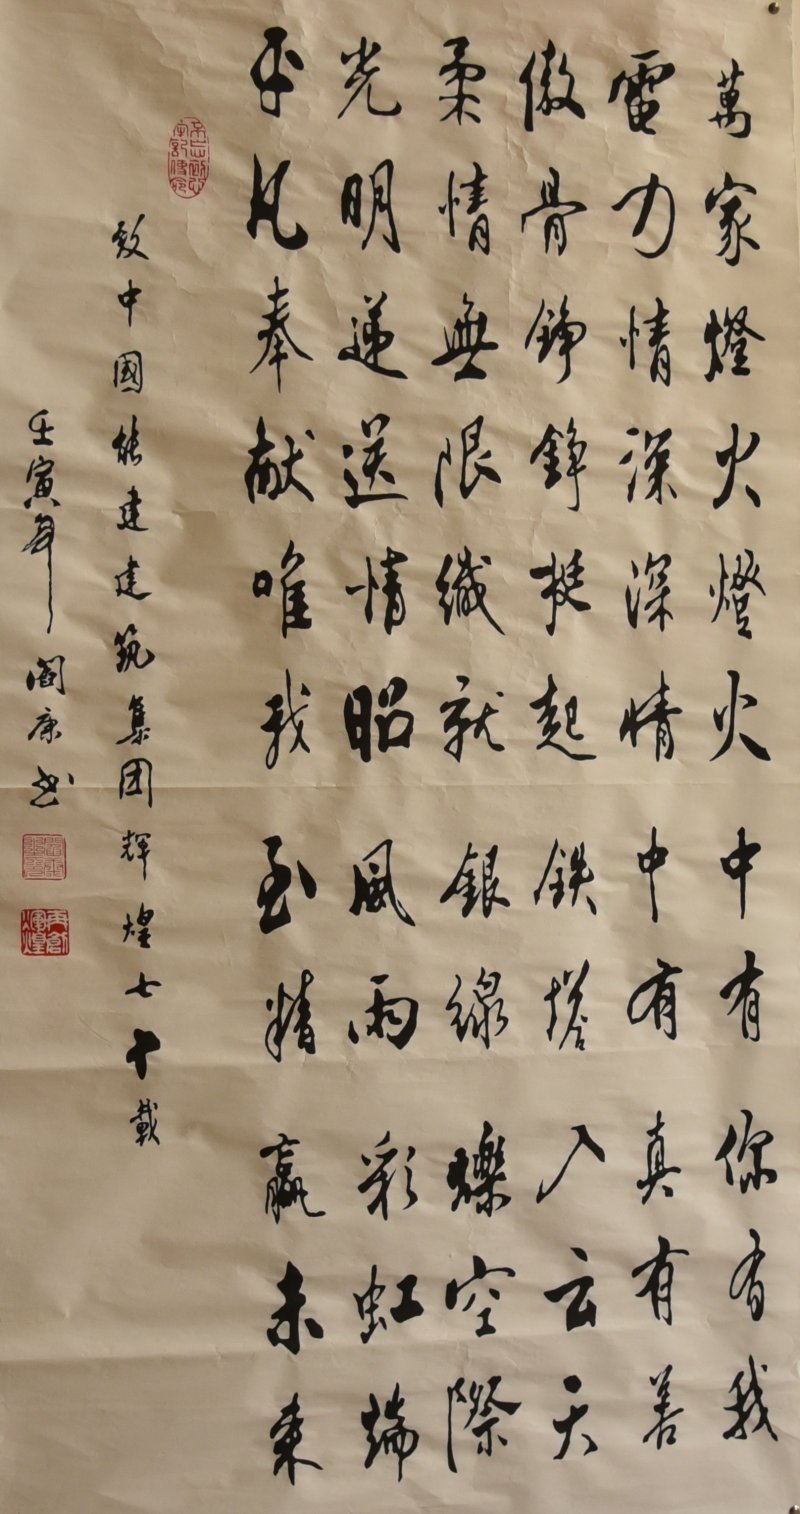 萬家燈火燈火中有你有我
電力情深深情中有真有善
傲骨錚錚挺起鉄塔入云天
柔情無限織就銀線爍空際
光明递送情昭風雨彩虹端
平凡奉献唯我至精赢未来
致中國能建建筑集团辉煌七十載
壬寅年阎康书
再創輝煌